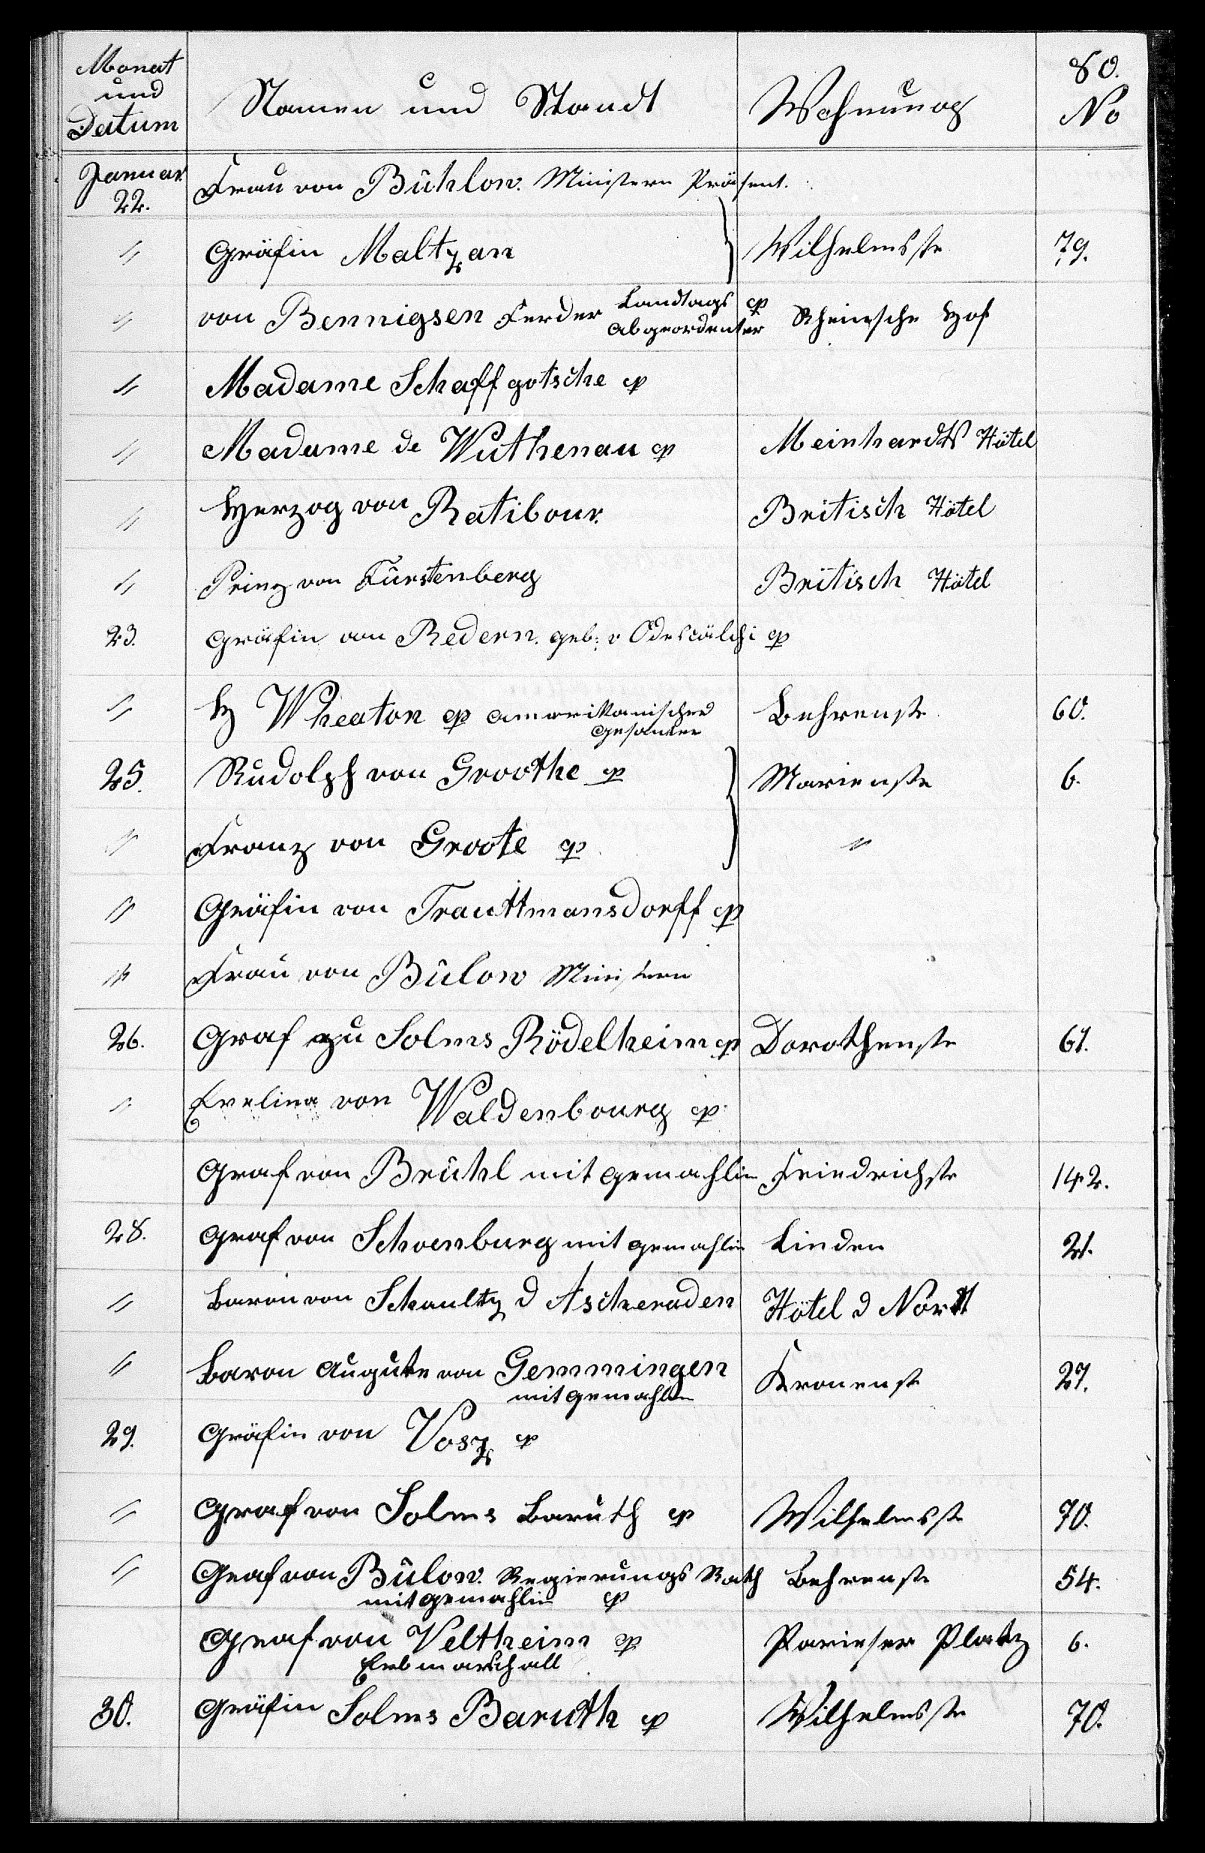 80.
Monat und Datum Namen und Standt Wohnung No
Januar 22. Frau von Bühlow. Ministern Präsent.
〃 Gräfin Maltzan Wilhelmsstr 79.
〃 von Bennigsen Ferder Landtags Abgeordenter cp Rheinsche Hof
〃 Madame Schaffgotsche cp
〃 Madame de Wuthenau cp Meinhardts Hôtel
〃 Herzog von Ratibour. Britisch Hôtel
〃 Prinz von Fürstenberg Britisch Hôtel
23. Gräfin von Redern. geb: v Odescälchi cp
〃 H Wheaton cp amarikanischer Gesanter Behrenstr 60.
25. Rudolph von Groothe cp Marienstr 6.
〃 Franz von Groote cp 〃
〃 Gräfin von Trauttmansdorff cp
〃 Frau von Bülow Ministern
26. Graf zu Solms Rödelheim cp Dorothenstr 61.
〃 Evelina von Waldenbourg cp
Graf von Brühl mit Gemahlin Friedrichstr 142.
28. Graf von Schoenburg mit Gemahlin Linden 21.
〃 Baron von Schaultz d Ascheraden Hôtel d Nordt
〃 Baron Augute von Gemmingen mit Gemahlin Kronenstr 27.
29. Gräfin von Vosz cp
〃 Graf von Solms Baruth cp Wilhelmsstr 70.
〃 Graf von Bülow. Regierungs Rath mit Gemahlin cp Behrenstr 54.
Graf von Veltheim cp Erbmarschall Parieser Platz 6.
30. Gräfin Solms Baruth cp Wilhelmsstr 70.